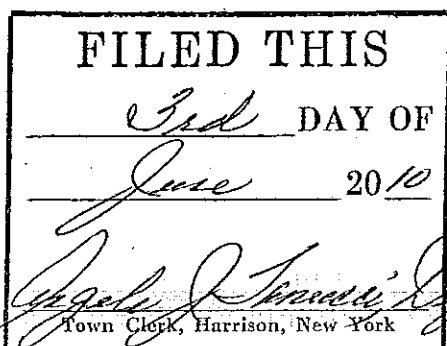 FILED THIS
3rd DAY OF
June 2010
Angelo J
Town Clerk, Harrison, New York